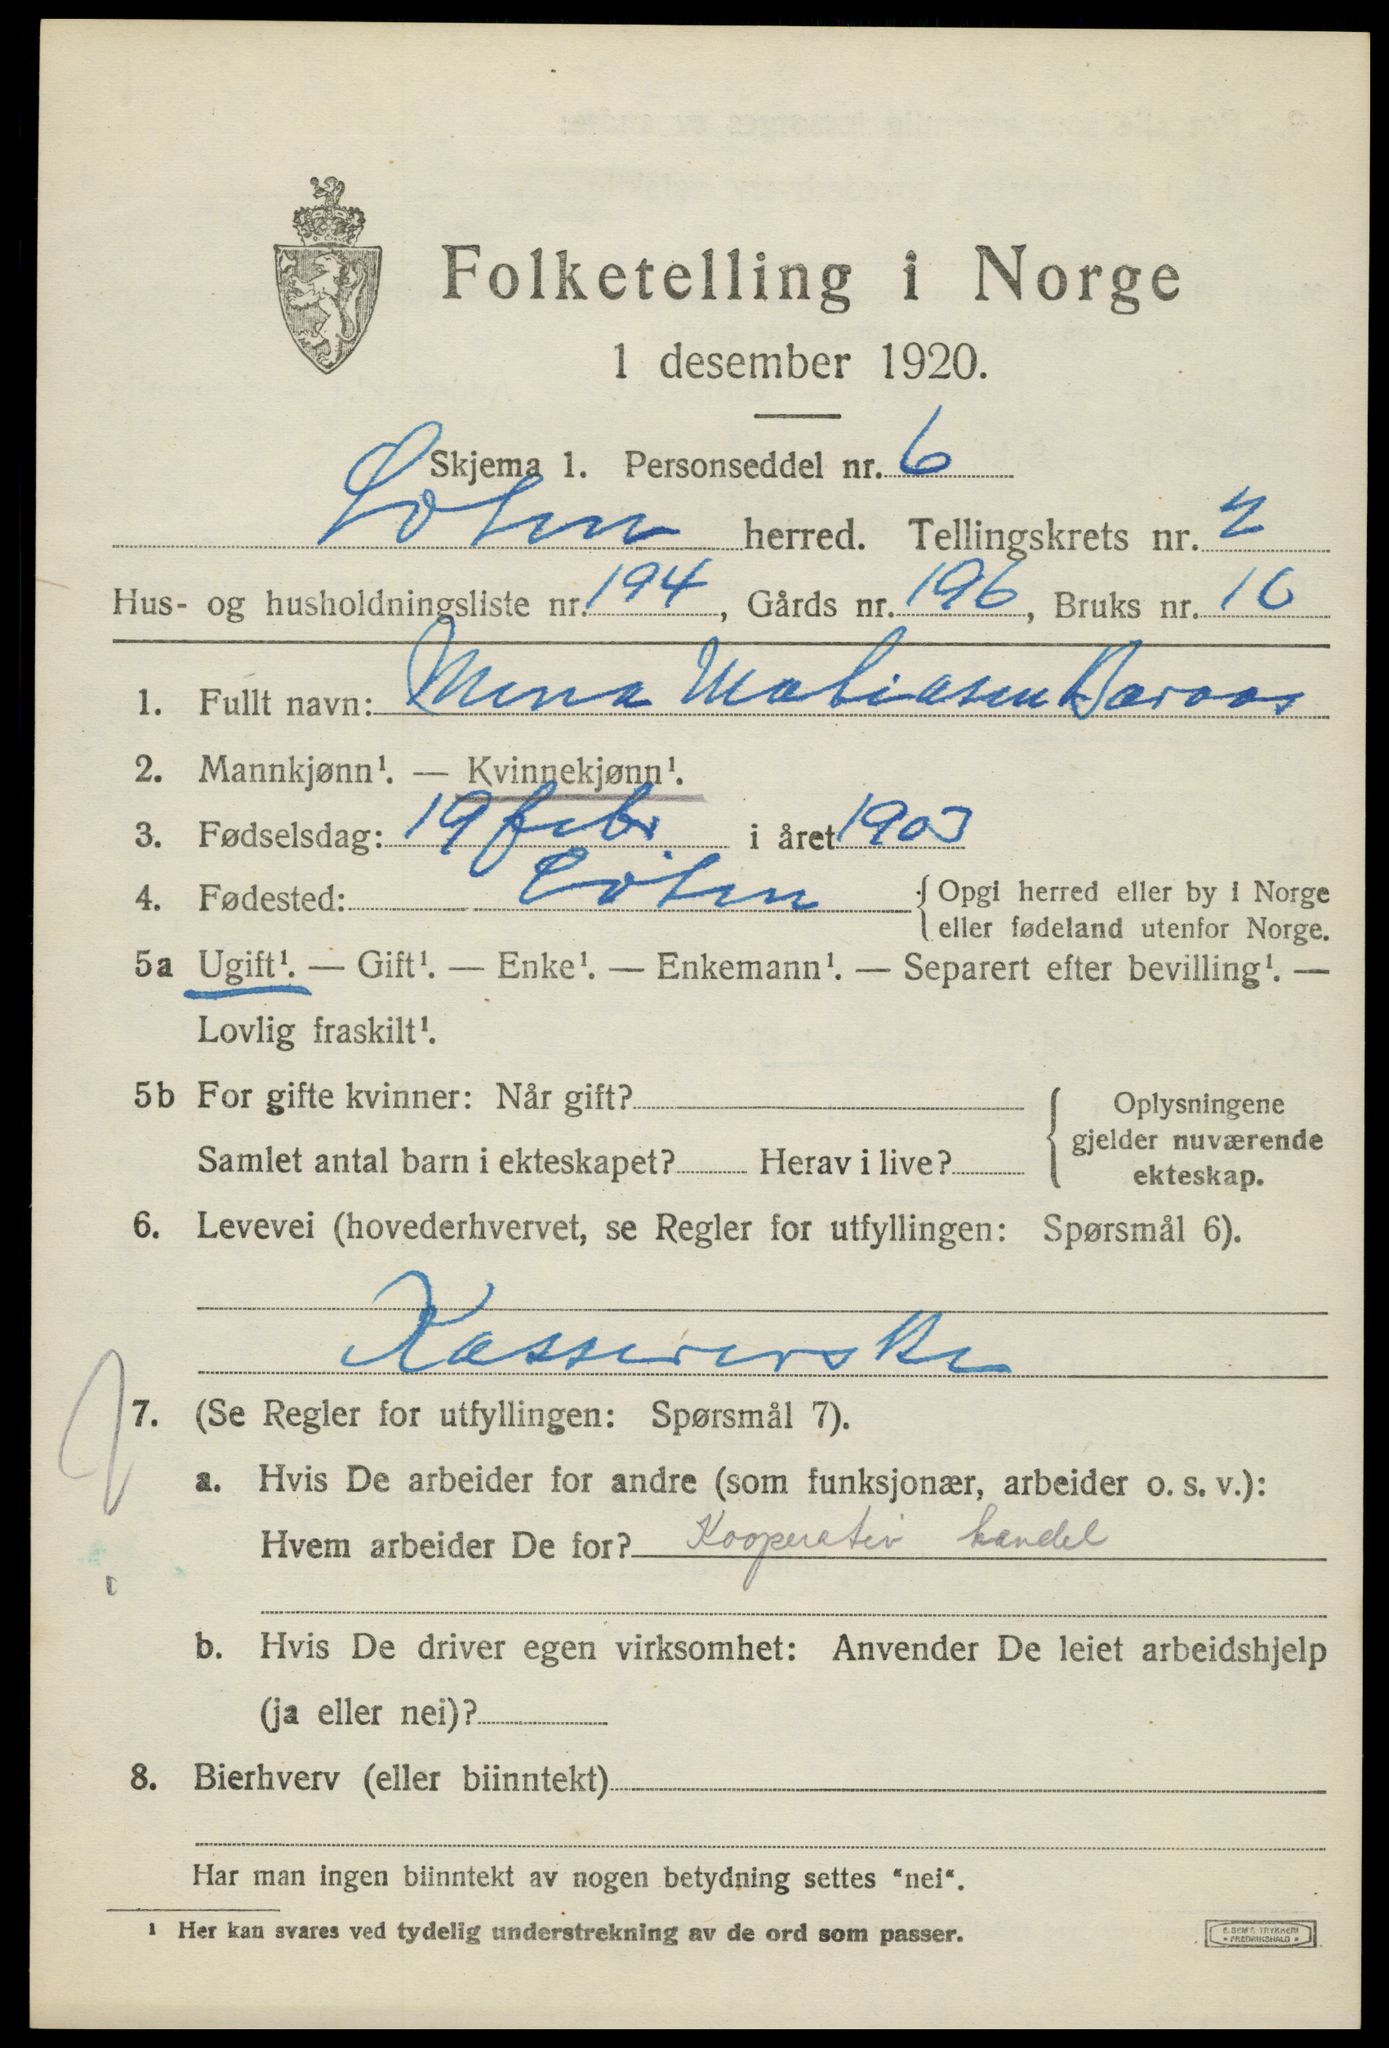 Folketelling i Norge
1 desember 1920.
Skjema 1. Personseddel nr. 6
Løten herred. Tellingskrets nr. 4
Hus- og husholdningsliste nr. 194, Gårds nr. 196, Bruks nr. 16
1. Fullt navn: Mina Matiasen
2. Mannkjønn¹. — Kvinnekjønn¹.
3. Fødselsdag: 19 febr i året 1903
4. Fødested: Løten { Opgi herred eller by i Norge
eller fødeland utenfor Norge.
5a Ugift¹. — Gift¹. — Enke¹. — Enkemann¹. — Separert efter bevilling¹. —
Lovlig fraskilt¹.
5b For gifte kvinner: Når gift? { Oplysningene
gjelder nuværende
Samlet antal barn i ekteskapet? Herav i live?
ekteskap.
6. Levevei (hovederhvervet, se Regler for utfyllingen: Spørsmål 6).
Kassererske
7. (Se Regler for utfyllingen: Spørsmål 7).
a. Hvis De arbeider for andre (som funksjonær, arbeider o. s. v.):
Hvem arbeider De for? Kooperativ handel
b. Hvis De driver egen virksomhet: Anvender De leiet arbeidshjelp
(ja eller nei)?
8. Bierhverv (eller biinntekt)
Har man ingen biinntekt av nogen betydning settes "nei".
1 Her kan svares ved tydelig understrekning av de ord som passer.
TRYKKERI
FREDRIKSHALD